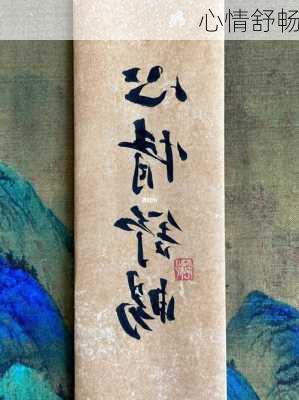 心情舒畅
心情舒暢